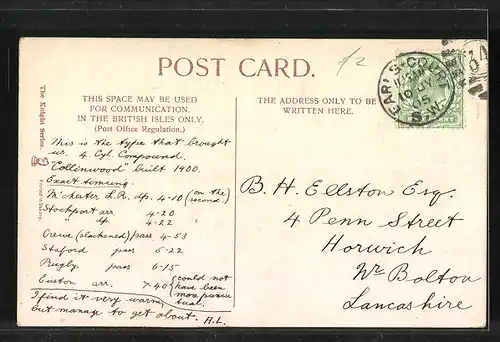 POST CARD.
£2
THIS SPACE MAY BE USED
FOR COMMUNICATION.
IN THE BRITISH ISLES ONLY.
(Post Office Regulation.)
THE ADDRESS ONLY TO BE
WRITTEN HERE.
The Knight Series
EARL'S COURT
S.W.
This is the type that brought
us. 4 Cyl. Compound.
"Collinwood" built 1900.
Exact timing
M'chester L.R. dp. 4-10 (on the
second.)
Stockport arr. 4-20
dp. 4-22
Crewe (slackened) pass 4-53
Staford pass 5-22
Rugby pass 6-15
Euston arr. 7-40 (could not
have been
more punc
tual.
I find it very warm
but manage to get about. H.L.
B. H. Ellston Esq.
4 Penn Street
Horwich
Nr Bolton
Lancashire